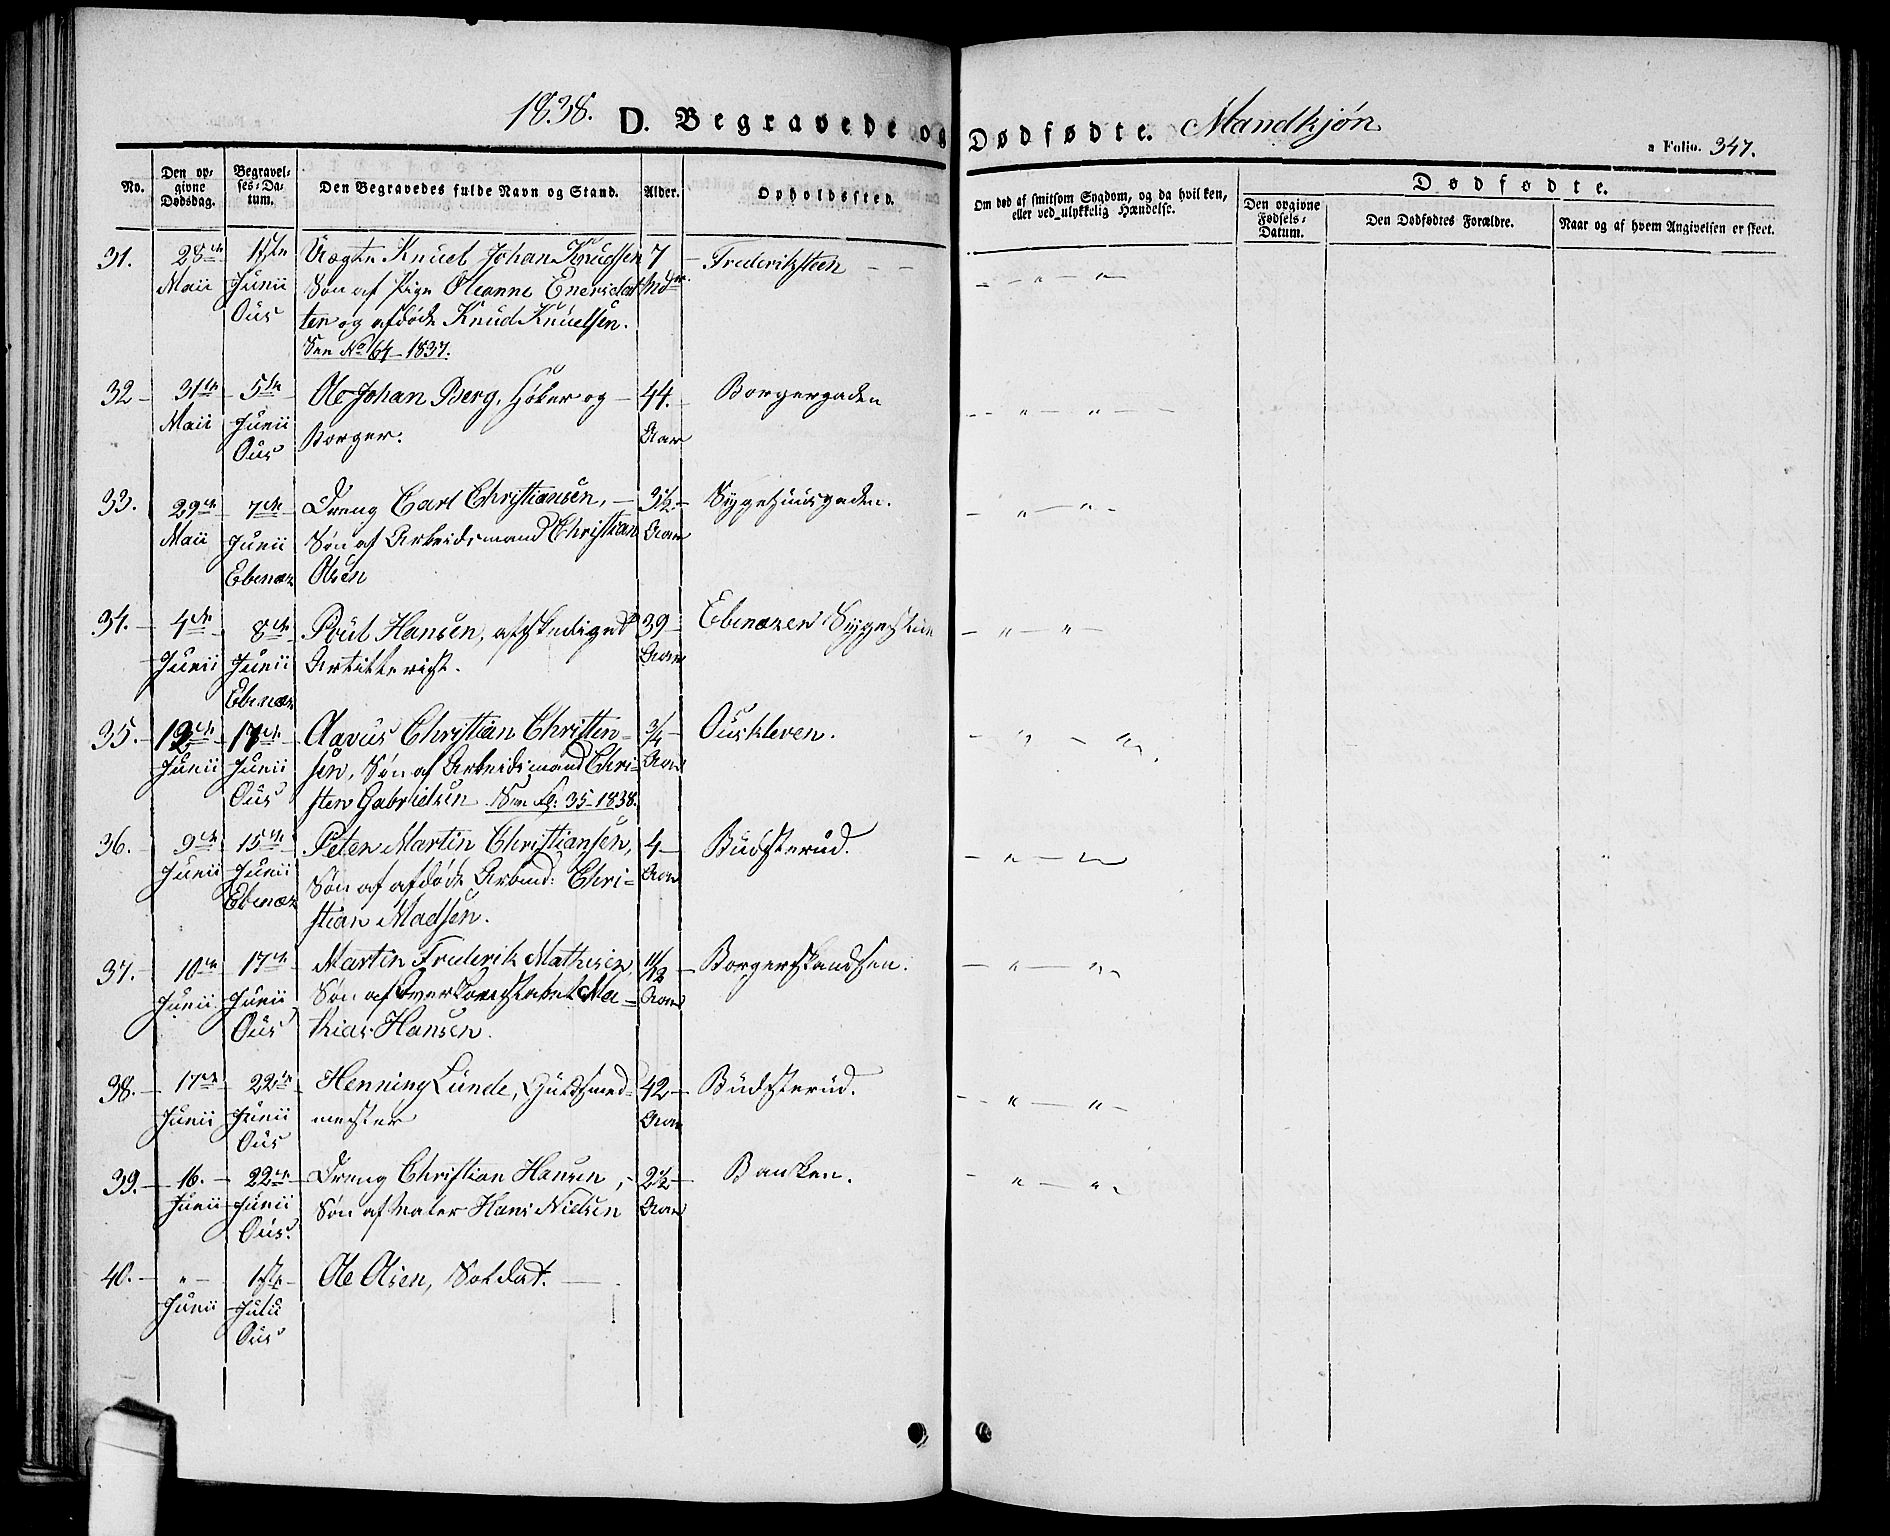 1838. D. Begravede og Dødfødte. Mandkjøn
a Folio. 347.
No.
Den opgivne Dødsdag.
Begravelses-Datum.
Den Begravedes fulde Navn og Stand.
Alder.
Opholdssted.
Om død af smitsom Sygdom, og da hvilken, eller ved ulykkelig Hændelse.
Dødfødte.
Den opgivne Fødsels-Datum.
Den Dødfødtes Forældre.
Naar og af hvem Angivelsen er skeet.
31. 28de 1ste Uægte Knud Johan Knudsen 7 Frederiksteen
Maii Junii Søn af Pige Oleanne Enersdat
Ous ter og afdøde Knud Knudsen.
See No 64-1837.
32 31te 5te Ole Johan Berg, Høker og 44. Borgergaden
Maii Junii Borger. Aar
Ous
33. 29de 7de Dreng Carl Christiansen, 3½ Sygehuusgaden.
Maii Junii Søn af Arbeidsmand Christian Aar
Ebenæz Olsen
34. 4de 8de Poul Hansen, afskediget 39 Ebenæzer Sygestue
Junii Junii Artillerist. Aar
Ebenæz
35. 12te 17de Aavus Christian Christen- ¾ Ouskleven.
Junii Junii sen, Søn af Arbeidsmand Chri- Aar
Ous sten Gabrielsen See fg: 35-1838.
36. 9de 15de Peter Martin Christiansen, 4 Büdsterüd.
Junii Junii Søn af afdøde Arbmd: Chri- Aar
Ebenæz stian Madsen.
37. 10de 17de Martin Frederik Mathisen, 11/12 Borgerskandsen.
Junii Junii Søn af Overkonstabel Ma- Aar
Ous thias Hansen.
38. 17de 22de Henning Lunde, Guldsmed- 42 Büdsterüd.
Junii Junii mester Aar
Ous
39. 16. 22de Dreng Christian Hansen, 2½ Banken.
Junii Junii Søn af Maler Hans Nielsen Aar
Ous.
40. " 1ste Ole Olsen, Soldat.
Junii Julii
Ous